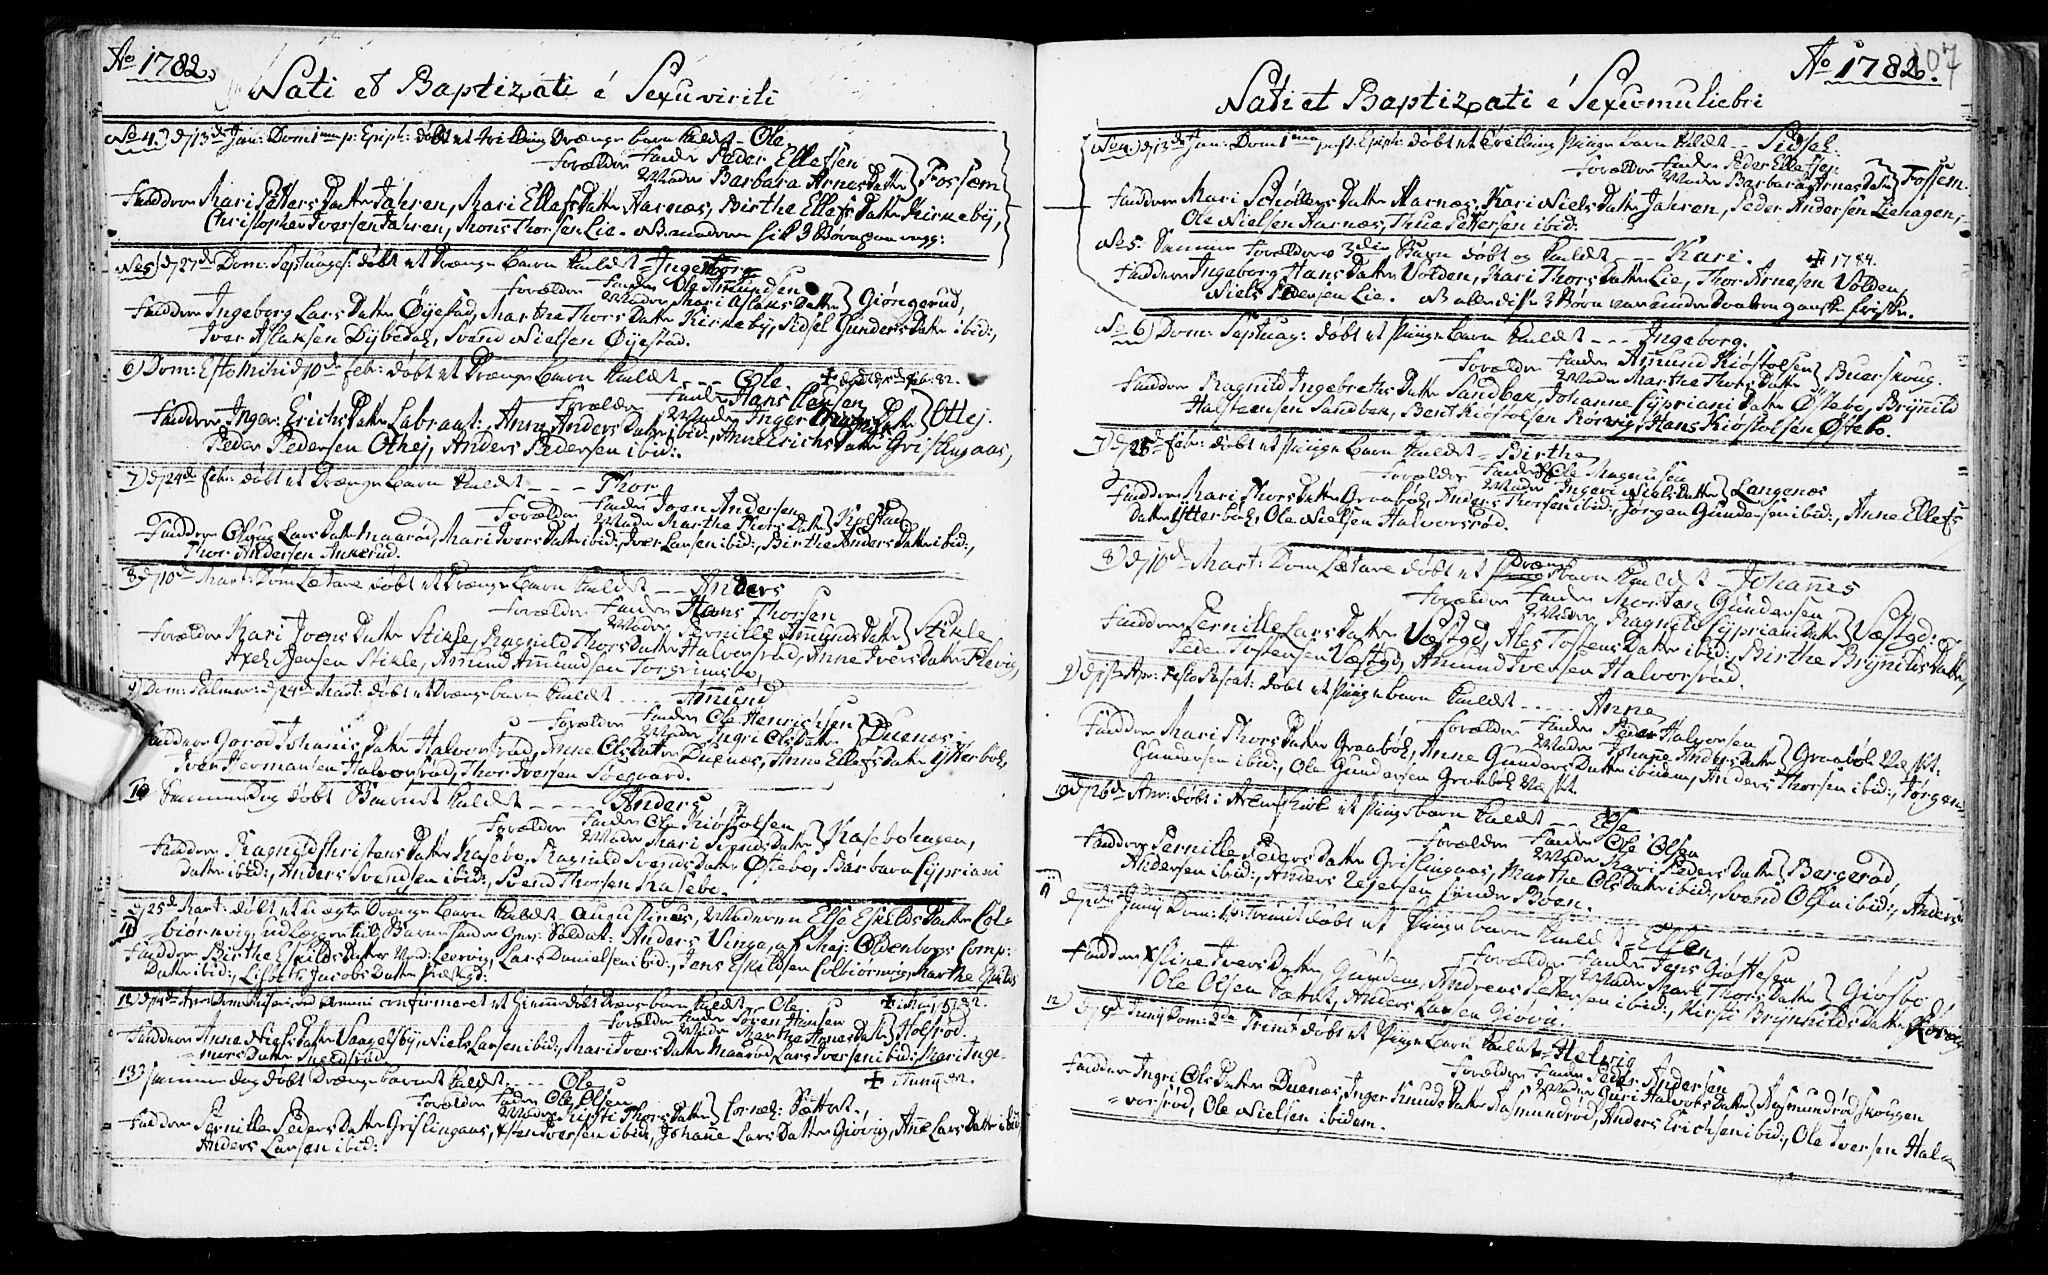 Ao 1782.
Nati et Baptizati é Sexu virili
No 4.) d 13de Jan: Dom 1ma p: Epiph: döbt et trilling Drænge barn kaldt - Ole.
Forældre Fader Peder Ellefsen
Moder Barbara Arnes Datter } Fossem
Faddere Mari Petters Datter Jahren, Mari Ellefs Datter Aarnæs, Birthe Ellefs Datter Kirkebÿ,
Christopher Iversen Jahren, Mons Thorsen Lie. NB. moderen fik 3 Börn
No 5) d 27de Dom: Septuages: döbt et Drænge barn kaldt - Ingeborg
Forældre Fader Ole Amundsen
Moder Mari Aslaks Datter } Giöngerud,
Faddere Ingeborg Lars Datter Öÿestad, Marthe Thors Datter Kirkebÿ, Sidsel Gunders Datter ibid:,
Iver Aslaksen Dÿbedahl, Svend Nielsen Öÿestad.
6) Dom: Esto Mihi d 10de Febr: döbt et Drænge barn kaldt - - Ole. 82.
Forældre Fader Hans Clausen
Moder Inger Datter } Ottej.
Faddere Inger Erichs Datter Labraat:, Anne Anders Datter ibid:, Anne Erichs Datter Grislingaas,
Peder Pedersen Othej, Anders Pedersen ibid:.
7) d 24de Febr: döbt et Drænge barn kaldt - - - Thor
Forældre Fader Joen Andersen
Moder Marthe Thors Datter } Kolstad
Faddere Olaug Lars Datter Maaröd, Mari Ivers Datter ibid:, Iver Larsen ibid:, Birthe Anders Datter ibid:,
Thor Andersen Ankerud.
8) d 10de Mart: Dom Lætare döbt et Drænge barn kaldt - - Anders
Forældre Fader Hans Thorsen
Moder Pernille Amunds Datter } Stikle
Forældre Kari Joens Datter Stikle, Ragnild Thors Datter Halvorsröd, Anne Ivers Datter Flevig,
Axel Jensen Stikle, Amund Amundsen Torgrimsbÿ,
9) Dom: Palmar: d 24de Mart: döbt et Drænge barn kaldt - - - - Amund
Forældre Fader Ole Henrichsen
Moder Ingri Ols Datter } Duenæs.
Faddere Joröd Johannis Datter Halvorsröd, Anne Ols Datter Duenæs, Anne Ellefs Datter Ytterböl,
Iver Hermansen Halvorsröd, Thor Iversen Soegaard.
10 Samme Dag döbt Barnet kaldt - - - - - Anders
Forældre Fader Ole Kiöstolsen
Moder Mari Svends Datter } Kasebohagen,
Faddere Ragnild Christens Datter Kasebo, Ragnild Svends Datter Östebo, Barbara Cÿpriani
Datter ibid:, Anders Svendsen ibid:, Svend Thorsen Kasebo.
11 d 25de Mart: döbt et uægte Drænge barn kaldt - Augustinus, Moderen Else Eskilds Datter Col-
biörnvig, udlagger til Barne fader Gev: Soldat: Anders Vinge, af Maj: Oldenborgs Comp:
Faddere Birthe Eskilds Datter Leervig, Lars Danielsen ibid:, Jens Eskildsen Colbiörnvig, Marthe Eskilds
Datter ibid:, Lisbeth Jacobs Datter Prästegd:
12) d 14de Apr: Dom Misericord Domini confirmeret et hiemme döbt Drænge barn kaldt - Ole ✝ i Maj 1782.
Forældre Fader Sören Hansen
Moder Marthe Arnes Datter } Holsröd.
Faddere Anne Niels Datter Vaagelsbÿ, Niels Larsen ibid:, Mari Ivers Datter Maaröd, Lars Iversen ibid:, Mari Inge-
mors Datter Sneldsröd
13) samme dag döbt Drænge barnet kaldt - - - Ole ✝ i Junÿ 82.
Forældre Fader Ole Olsen
Moder Kirsti Thors Datter } Corneh: Sættret.
Faddere Pernille Peders Datter Grislingaas, Esten Iversen ibid:, Johanne Lars Datter Giöväg, Anne Lars Datter ibid
Anders Larsen ibid:
Ao 1782. 107
Nati et Baptizati é Sexu muliebri
No 4.) d 13de Jan: Dom 1ma p: Epiph: döbt et Trelling Piige barn kaldt - - Sidsel.
Forældre Fader Peder Ellefsen
Moder Barbara Arnes Datter } Fossem.
Faddere Mari Schölles Datter Aarnæs, Kari Niels Datter Jahren, Peder Andersen Liehagen,
Ole Nielsen Aarnæs, Thue Pettersen ibid:
No 5. Samme Forældres 3die Barn döbt og kaldt - - Kari. ✝ 1784.
Faddere Ingeborg Hans Datter Volden, Kari Thors Datter Lie, Thor Arnesen Volden,
Niels Pedersen Lie. NB alle disse 3 Börn var under Daaben ganske friske.
No 6) Dom: Septuag: döbt et Piige barn kaldt - - - Ingeborg.
Forældre Fader Amund Kiöstolsen
Moder Marthe Thors Datter } Buerskoug.
Faddere Ragnild Ingebreths Datter Sandbek, Johanne Cÿpriani Datter Östebo, Brÿnild
Halsteensen Sandbek, Bent Kiöstolsen Rörvig, Hans Kiöstolsen Östebo.
7) d 25de Febr: döbt et Piige barn kaldt - Birthe
Forældre Fader Ole Magnusen
Moder Ingeri Niels Datter } Langenæs
Faddere Mari Thors Datter Graaböl, Anders Thorsen ibid:, Jörgen Gundersen ibid:, Anne Ellefs
Datter Ytterböl, Ole Nielsen Halvorsröd.
8) d 10de Mart: Dom Lætare döbt et Drænge barn kaldt - Johannes
Forældre Fader Morten Gundersen
Moder Ragnild Cÿpriani Datter } Væstgd:
Faddere Pernille Lars Datter Væstgd, Ales Tostens Datter ibid:, Birthe Brÿnilds Datter,
Peder Tostensen Væstgd, Amund Iversen Halvorsröd.
9) d 1ste Apr: Festo Paschat: döbt et Piige barn kaldt - - - - - Anne
Forældre Fader Peder Halvorsen
Moder Johanne Anders Datter } Graaböl Væstr:
Faddere Mari Thors Datter Graaböl, Anne Gunders Datter ibidem, Anders Thorsen ibid:, Jörgen
Gundersen ibid:, Ole Gundersen Graaböl Væstr.
10) d 26de Apr: döbt i Arem kirke et Piige barn kaldt - - Else
Forældre Fader Ole Olsen
Moder Kari Peders Datter } Bergeröd
Faddere Pernille Peders Datter Grislingaas, Marthe Ols Datter ibid:, Svend Olsen ibid:, Anders
Andersen ibid:, Anders Vejersen Synder Böen.
11 d 2den Junÿ Dom: 1. p: Trinit döbt et Piige barn kaldt - Elsen
Forældre Fader Jens Giöttesen
Moder Mari Thors Datter } Giösbo
Faddere Eline Ivers Datter Gundem, Andreas Pettersen ibid:, Kirsti Brÿnhilds Datter Rörvig
Ole Olsen Sættret, Anders Larsen Giövig.
12) d 9de Junÿ Dom: 2da Trinit döbt et Piige barn kaldt - Helvig
Forældre Fader Peder Andersen
Moder Guri Halvors Datter } Aasmundröd skougen
Faddere Ingri Ols Datter Duenæs, Inger Knuds Datter Aasmundröd, Anders Erichsen ibid:, Ole Iversen Hal-
vorsröd, Ole Nielsen ibidem.